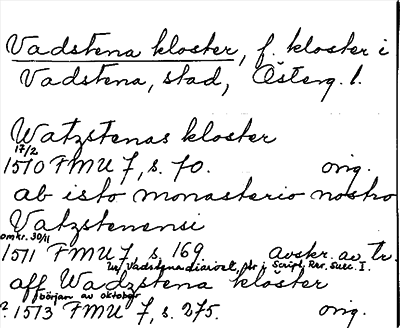 Vadstena kloster, f. kloster i
Vadstena, stad, Österg. l.
Watzstenas kloster
17/2
1510 FMU 7, s. 70. orig.
ab isto monasterio nostro
Vatzstenensi
omkr. 30/11
1511 FMU 7, s. 169 avskr. av tr.
ur Vadstenadiariet, tr i Script. Rer. Suec. I.
aff Wadzstena kloster
början av oktober
? 1513 FMU 7, s. 275. orig.